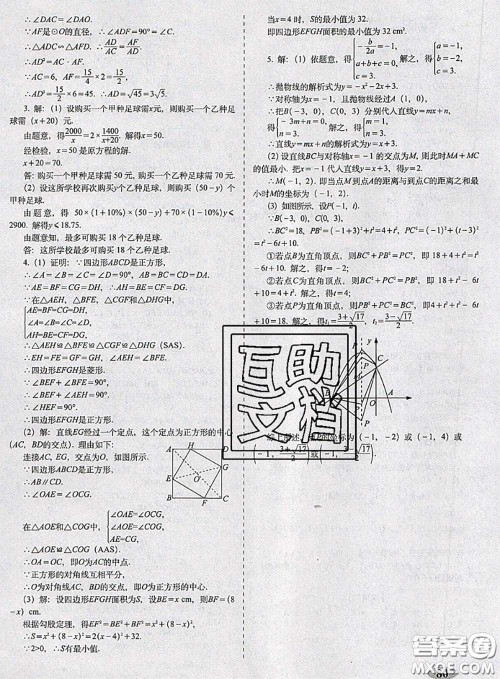 ∴∠DAC=∠OAC.
∵AF是⊙O的直径, ∴∠ADF=90°=∠C.
∴△ADC∽△AFD. ∴AD/AC=AF/AD.
∴AD²=AC·AF.
∵AC=6, AF=15/4×2=15/2,
∴AD²=15/2×6=45. ∴AD=√45=3√5.
3. 解: (1) 设购买一个甲种足球需x元, 则购买一个乙种足
球需 (x+20) 元.
由题意, 得2000/x=2×1400/(x+20). 解得x=50.
经检验, x=50是原方程的解.
x+20=70.
答: 购买一个甲种足球需50元, 购买一个乙种足球需70元.
(2) 设这所学校再次购买y个乙种足球, 则购买 (50-y) 个
甲种足球.
由题意, 得50×(1+10%)×(50-y)+70×(1-10%)y≤
2900. 解得y≤18.75.
由题意知, 最多可购买18个乙种足球.
答: 这所学校最多可购买18个乙种足球.
4. (1) 证明: ∵四边形ABCD是正方形,
∴∠A=∠B=90°, AB=BC=CD=DA.
∵AE=BF=CG=DH, ∴AH=BE=CF=DG.
∵在△AEH, △BFE, △CGF和△DHG中,
AE=BF=CG=DH,
∠A=∠B=∠C=∠D,
AH=BE=CF=DG,
∴△AEH≌△BFE≌△CGF≌△DHG (SAS).
∴EH=FE=GF=HG, ∠AEH=∠BFE.
∴四边形EFGH是菱形.
∵∠BEF+∠BFE=90°,
∴∠BEF+∠AEH=90°.
∴∠HEF=90°.
∴四边形EFGH是正方形.
(2) 解: 直线EG经过一个定点, 这个定点为正方形的中心
(AC, BD的交点). 理由如下:
连接AC, EG, 交点为O, 如图所示.
∵四边形ABCD是正方形,
∴AB∥CD.
∴∠OAE=∠OCG.
在△AOE和△COG中,
∠OAE=∠OCG,
∠AOE=∠COG,
AE=CG,
∴△AOE≌△COG (AAS).
∴OA=OC, 即O为AC的中点.
∵正方形的对角线互相平分,
∴O为对角线AC, BD的交点, 即O为正方形的中心.
(3) 解: 设四边形EFGH面积为S, 设BE=x cm, 则BF=(8
-x) cm.
根据勾股定理, 得EF²=BE²+BF²=x²+(8-x)².
∴S=x²+(8-x)²=2(x-4)²+32.
∵2>0, ∴S有最小值.
A H D
E O G
B F C
当x=4时, S的最小值为32.
即四边形EFGH面积的最小值为32 cm².
5. 解: (1) 依题意, 得
-b/2a=-1,
a+b+c=0,
c=3.
解之, 得
a=-1,
b=-2,
c=3.
∴抛物线的解析式为y=-x²-2x+3.
∵对称轴为x=-1, 且抛物线经过A(1, 0),
∴把B(-3, 0), C(0, 3)分别代入直线y=mx+n,
得
-3m+n=0,
n=3.
解之, 得
m=1,
n=3.
∴直线y=mx+n的解析式为y=x+3.
(2) 设直线BC与对称轴x=-1的交点为M, 则此时MA+MC
的值最小. 把x=-1代入直线y=x+3, 得y=2.
∴M(-1, 2). 即当点M到点A的距离与到点C的距离之和最
小时M的坐标为 (-1, 2).
(3) 如图所示, 设P(-1, t).
又∵B(-3, 0), C(0, 3),
∴BC²=18, PB²=(-1+3)²+t²=4+t², PC²=(-1)²+(t-3)²
=t²-6t+10.
①若点B为直角顶点, 则BC²+PB²=PC², 即18+4+t²=t²-
6t+10. 解之, 得t=-2;
②若点C为直角顶点, 则BC²+PC²=PB², 即18+t²-6t+10=
4+t². 解之, 得t=4;
③若点P为直角顶点, 则PB²+PC²=BC², 即4+t²+t²-6t+
10=18. 解之, 得t₁=(3+√17)/2, t₂=(3-√17)/2.
互助
文档
P C O A x y
综上所述, P的坐标为 (-1, -2) 或 (-1, 4) 或
(-1, (3+√17)/2) 或 (-1, (3-√17)/2).
80
答案圈
MXQE.COM